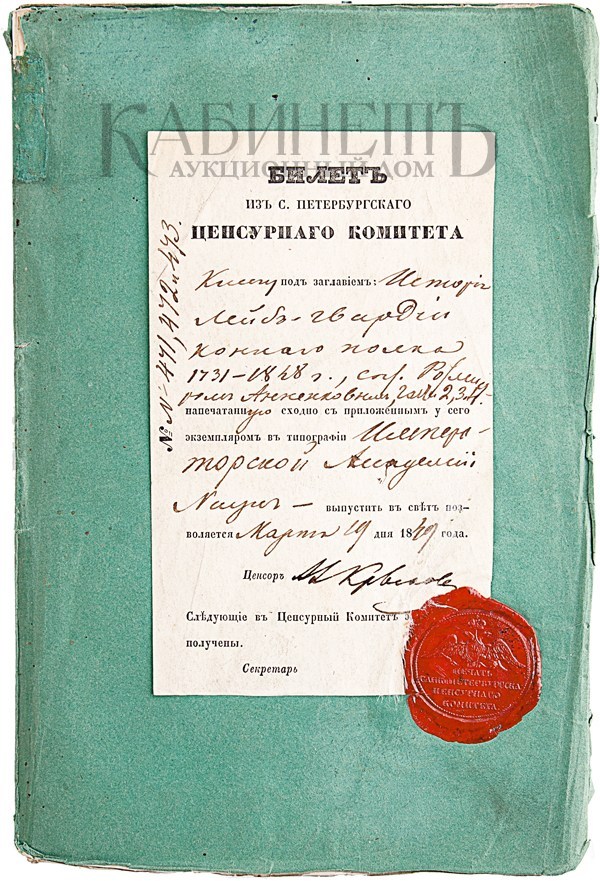 КАБИНЕТЪ
АУКЦИОННЫЙ ДОМ
БИЛЕТЪ
ИЗЪ С. ПЕТЕРБУРГСКАГО
ЦЕНСУРНАГО КОМИТЕТА
№№ 471, 472 и 473.
Книгу подъ заглавіемъ: Исторія
Лейбъ-гвардіи
коннаго полка
1731-1848 г., соч.
Анненковымъ, 2, 3, 4.
напечатанную сходно съ приложеннымъ у сего
экземпляромъ въ типографіи Импера-
торской Академіи
Наукъ — выпустить въ свѣтъ поз-
воляется Марта 19 дня 1849 года.
Ценсоръ А Крылов
Слѣдующіе въ Ценсурный Комитетъ
получены.
Секретарь
ПЕЧАТЬ
САНКТПЕТЕРБУРГСКА
ЦЕНСУРНАГО
КОМИТЕТА